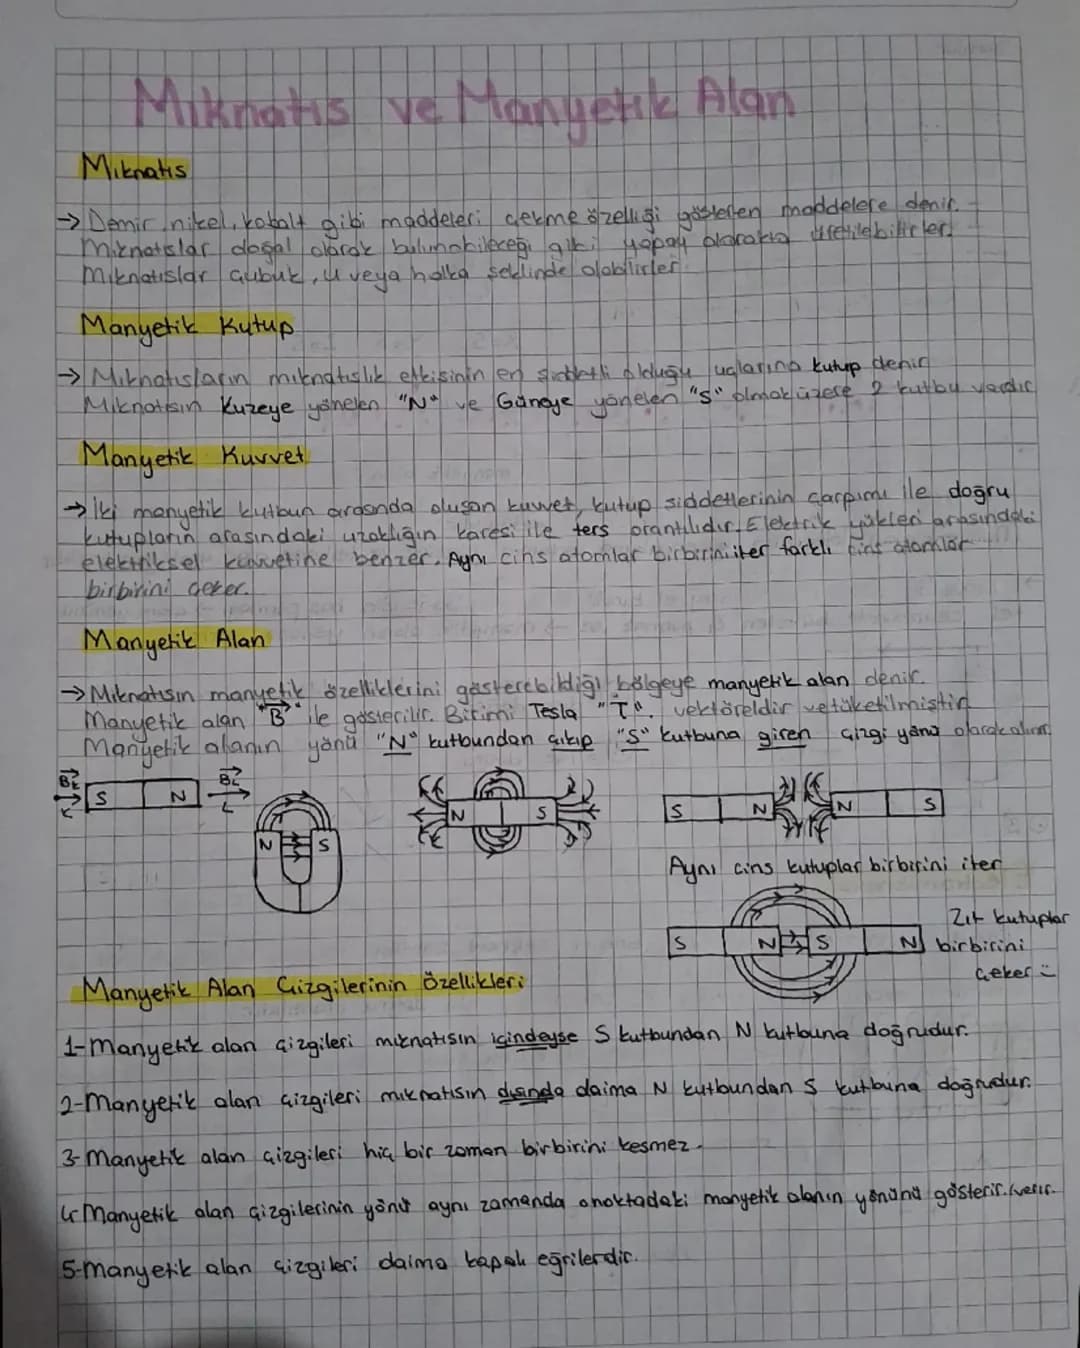 Mıknatıs ve Manyetik Alan
Mıknatıs
→ Demir, nikel, kobalt gibi maddeleri çekme özelliği gösteren maddelere denir.
Mıknatıslar doğal olarak bulunabileceği gibi yapay olarakta üretilebilirler.
Mıknatıslar çubuk, U veya halka şeklinde olabilirler.
Manyetik Kutup
→ Mıknatısların mıknatıslık etkisinin en şiddetli olduğu uçlarına kutup denir
Mıknatısın Kuzeye yönelen "N" ve Güneye yönelen "S" olmak üzere 2 kutbu vardır
Manyetik Kuvvet
→ İki manyetik kutbun arasında oluşan kuvvet, kutup şiddetlerinin çarpımı ile doğru
kutupların arasındaki uzaklığın karesi ile ters orantılıdır. Elektrik yükleri arasındaki
elektriksel kuvvetine benzer. Aynı cins atomlar birbirini iter farklı cins atomlar
birbirini çeker.
Manyetik Alan
→ Mıknatısın manyetik özelliklerini gösterebildiği bölgeye manyetik alan denir.
Manyetik alan "B" ile gösterilir. Birimi Tesla "T". vektöreldir ve türetilmiştir
Manyetik alanın yönü "N" kutbundan çıkıp "S" kutbuna giren çizgi yönü olarak alınır.
S N
N S
N S
S N N S
Aynı cins kutuplar birbirini iter
S N S N
Zıt kutuplar
birbirini
çeker
Manyetik Alan Çizgilerinin Özellikleri
1-Manyetik alan çizgileri mıknatısın içindeyse S kutbundan N kutbuna doğrudur.
2-Manyetik alan çizgileri mıknatısın dışında daima N kutbundan S kutbuna doğrudur.
3-Manyetik alan çizgileri hiç bir zaman birbirini kesmez.
4-Manyetik alan çizgilerinin yönü aynı zamanda o noktadaki manyetik alanın yönünü gösterir.
5-Manyetik alan çizgileri daima kapalı eğrilerdir.